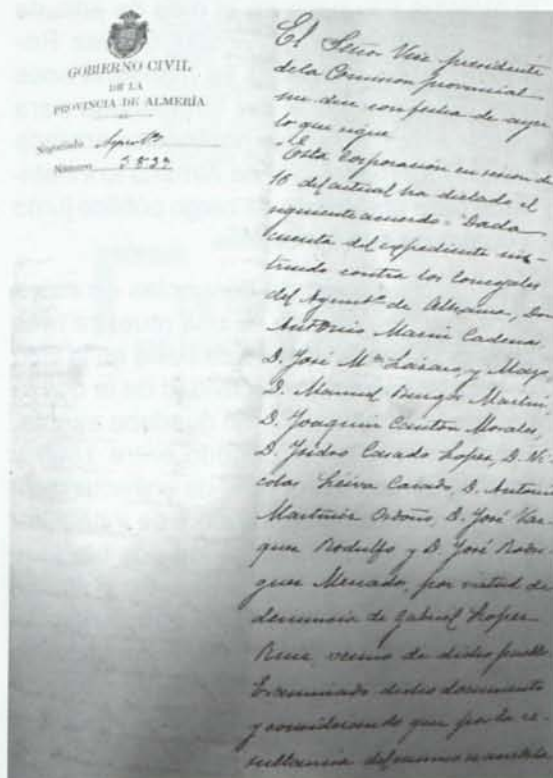 GOBIERNO CIVIL
DE LA
PROVINCIA DE ALMERÍA
Negociado Ayunt.os
Número 5833
El Señor Vice presidente
de la Comision provincial
me dice con fecha de ayer
lo que sigue
"Esta Corporación en sesion de
16 del actual ha dictado el
siguiente acuerdo = Dada
cuenta del expediente ins-
truido contra los Concejales
del Ayunt.o de Alhama, Don
Antonio Marin Cadenas,
D. José M.a Lázaro y Maza,
D. Manuel Burgos Martin,
D. Joaquin Canton Morales,
D. Isidro Casado Lopez, D. Ni-
colas Leiva Casado, D. Antonio
Martinez Ordoño, D. José Vaz-
quez Rodulfo y D. José Rodri
guez Mercado, por virtud de
denuncia de Gabriel Lopez
vecino de dicho pueblo
Examinado dicho documento
y considerando que por la re-
sultancia del mismo